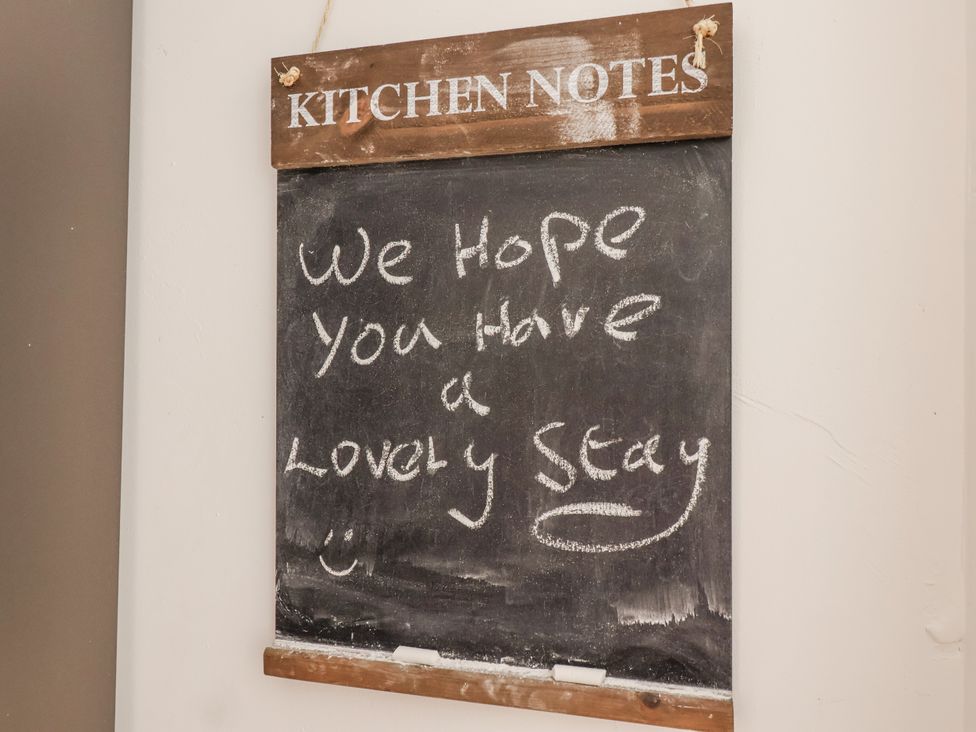 KITCHEN NOTES
We Hope
You Have
a
Lovely Stay